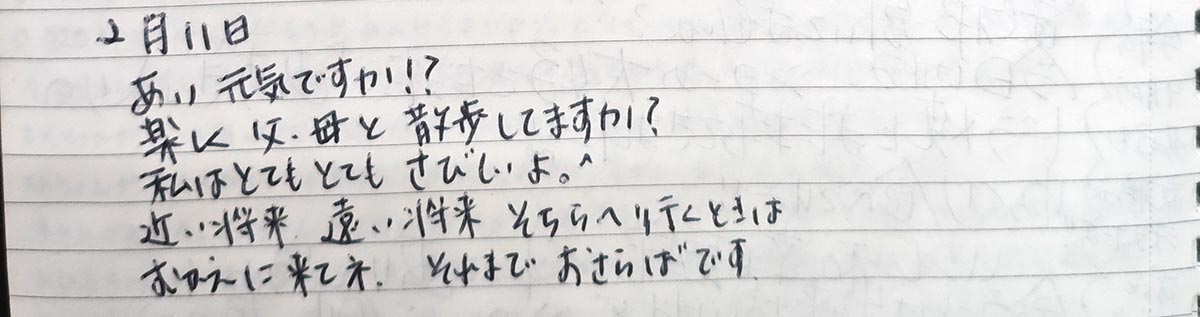 2月11日
あい 元気ですか!?
楽しく 父・母と 散歩してますか?
私はとてもとても さびしいよ。
近い将来 遠い将来 そちらへ行くときは
むかえに来てネ. それまで おさらばです.